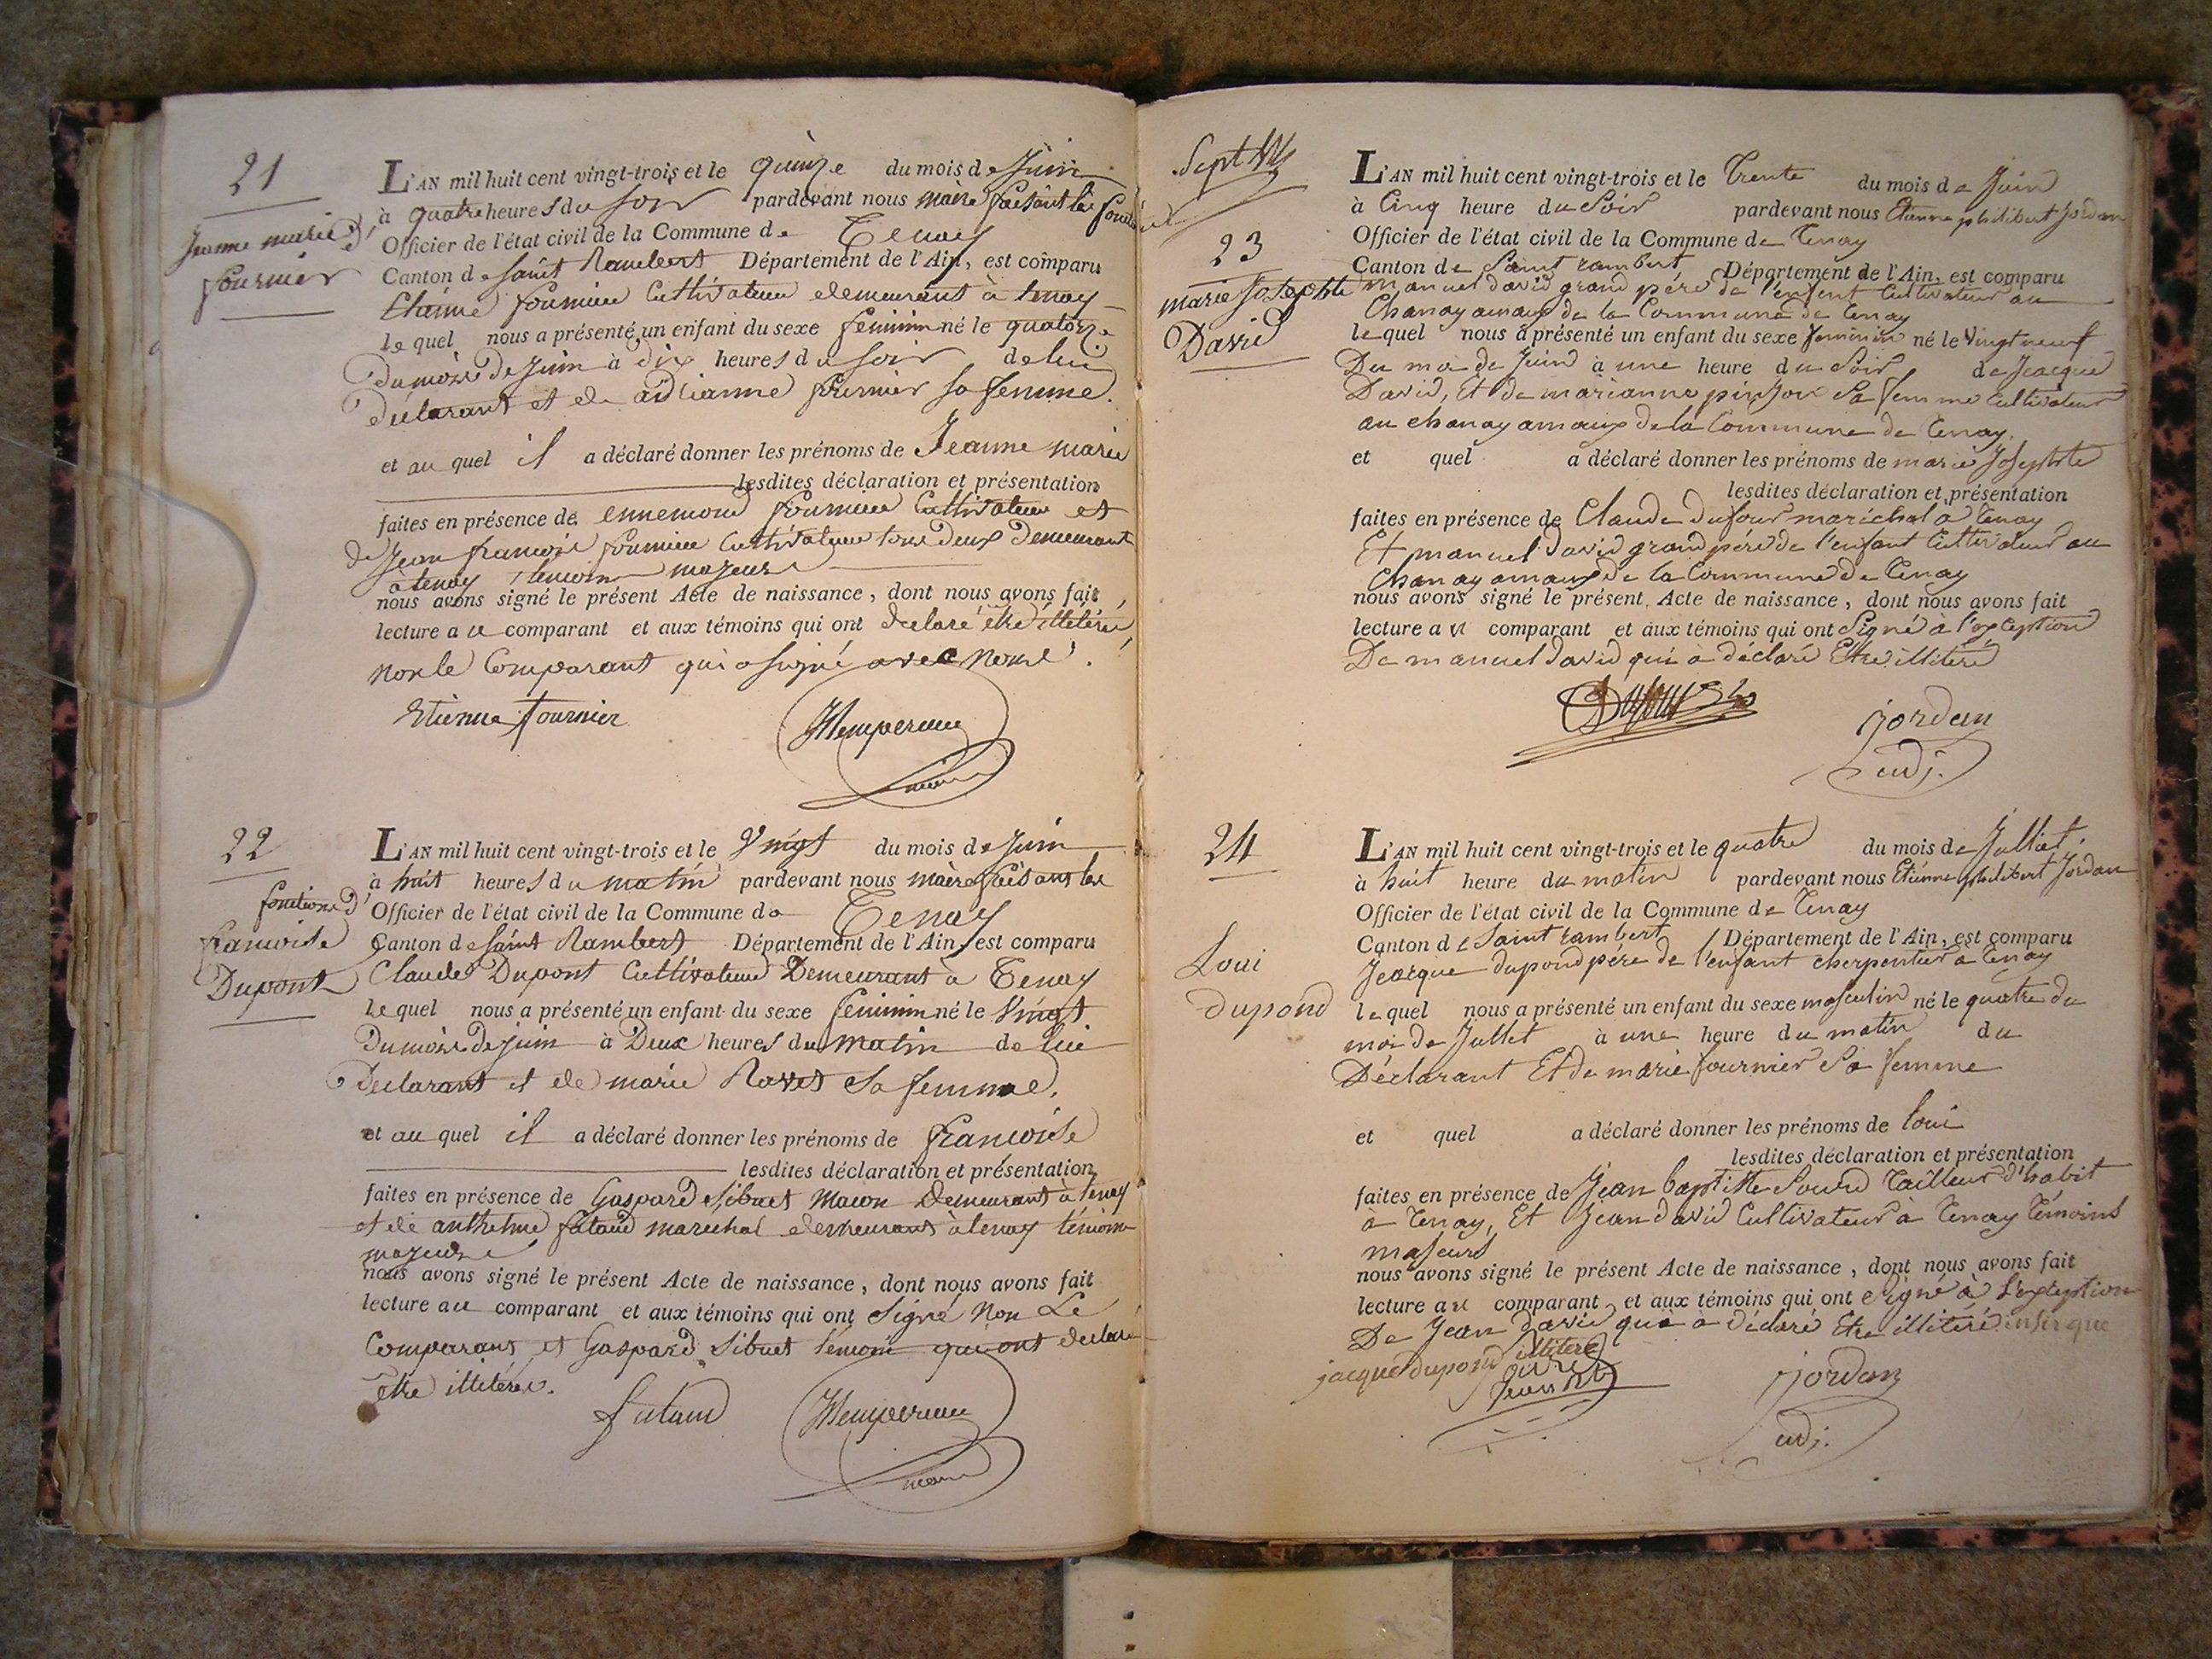 21
Jeanne marie
fournier
L'AN mil huit cent vingt-trois et le quinze du mois de Juin
à quatre heures du soir pardevant nous maire faisant les
Officier de l'état civil de la Commune de Tenay
Canton de saint Rambert Département de l'Ain, est comparu
Etienne fournier Cultivateur demeurant à tenay
lequel nous a présenté un enfant du sexe feminin né le quatorze
du mois de Juin à dix heures du soir de lui
declarant et de fournier sa femme.
et au quel il a déclaré donner les prénoms de Jeanne marie
lesdites déclaration et présentation
faites en présence de ennemond fournier Cultivateur et
de Jean francois fournier Cultivateur tous deux demeurant
a tenay temoins majeurs
nous avons signé le présent Acte de naissance, dont nous avons fait
lecture au comparant et aux témoins qui ont declaré être illitéré
non le Comparant qui a signé avec nous.
Etienne fournier
maire
22
fonctions d'
francoise
Dupont
L'AN mil huit cent vingt-trois et le Vingt du mois de Juin
à huit heures du matin pardevant nous maire faisant les
Officier de l'état civil de la Commune de Tenay
Canton de saint Rambert Département de l'Ain, est comparu
Claude Dupont Cultivateur Demeurant à Tenay
lequel nous a présenté un enfant du sexe feminin né le Vingt
du mois de juin à Deux heures du matin de lui
Declarant et de marie Ravet sa femme.
et au quel il a déclaré donner les prénoms de francoise
lesdites déclaration et présentation
faites en présence de Gaspard Sibuet macon Demeurant à tenay
et de anthelme fataud marechal demeurant à tenay témoins
majeurs
nous avons signé le présent Acte de naissance, dont nous avons fait
lecture au comparant et aux témoins qui ont signé non Le
Comparant et Gaspard Sibuet témoin qui ont declaré
être illitérés.
fataud
maire
23
marie Josephte
David
L'AN mil huit cent vingt-trois et le Trente du mois de Juin
à Cinq heure du Soir pardevant nous Etienne philibert Jordan
Officier de l'état civil de la Commune de Tenay
Canton de Saint rambert Département de l'Ain, est comparu
manuel david grand pére de l'enfent Cultivateur au
Chanay amaux de la Commune de Tenay
lequel nous a présenté un enfant du sexe feminin né le Vingt neuf
Du moi de Juin à une heure du Soir de Jeacque
David, Et de marianne pinjon Sa femme Cultivateur
au chanay amaux de la Commune de Tenay.
et quel a déclaré donner les prénoms de marie Josephte
lesdites déclaration et présentation
faites en présence de Claude dufour maréchal à Tenay
Et manuel david grand pére de l'enfant Cultivateur au
Chanay amaux de la Commune de Tenay
nous avons signé le présent Acte de naissance, dont nous avons fait
lecture au comparant et aux témoins qui ont Signé à l'exception
De manuel david qui à déclaré Etre illitéré
Dufour
jordan
adj.
24
Loui
dupond
L'AN mil huit cent vingt-trois et le quatre du mois de Julliet.
à huit heure du matin pardevant nous Etienne philibert Jordan
Officier de l'état civil de la Commune de Tenay
Canton de Saint rambert Département de l'Ain, est comparu
Jeacque dupond pére de l'enfant cherpentier à Tenay
lequel nous a présenté un enfant du sexe masculin né le quatre du
moi de Jullet à une heure du matin du
Déclarant Et de marie fournier Sa femme
et quel a déclaré donner les prénoms de loui
lesdites déclaration et présentation
faites en présence de Jean baptiste Sourd Tailleur d'habit
à Tenay, Et Jean david Cultivateur à Tenay Témoins
majeurs
nous avons signé le présent Acte de naissance, dont nous avons fait
lecture au comparant et aux témoins qui ont Signé à l'exception
De Jean david qui à déclaré Etre illitéré
jacque dupond illiteré
jordan
adj.